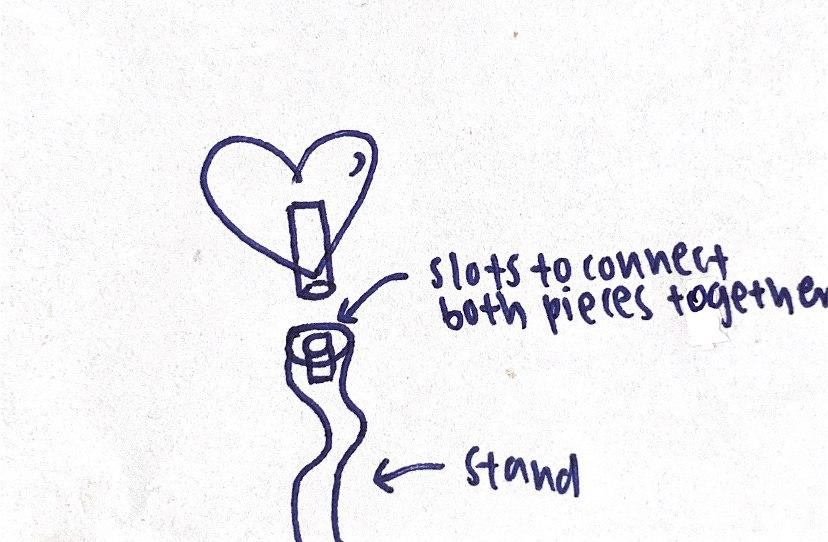 slots to connect
both pieces together
stand